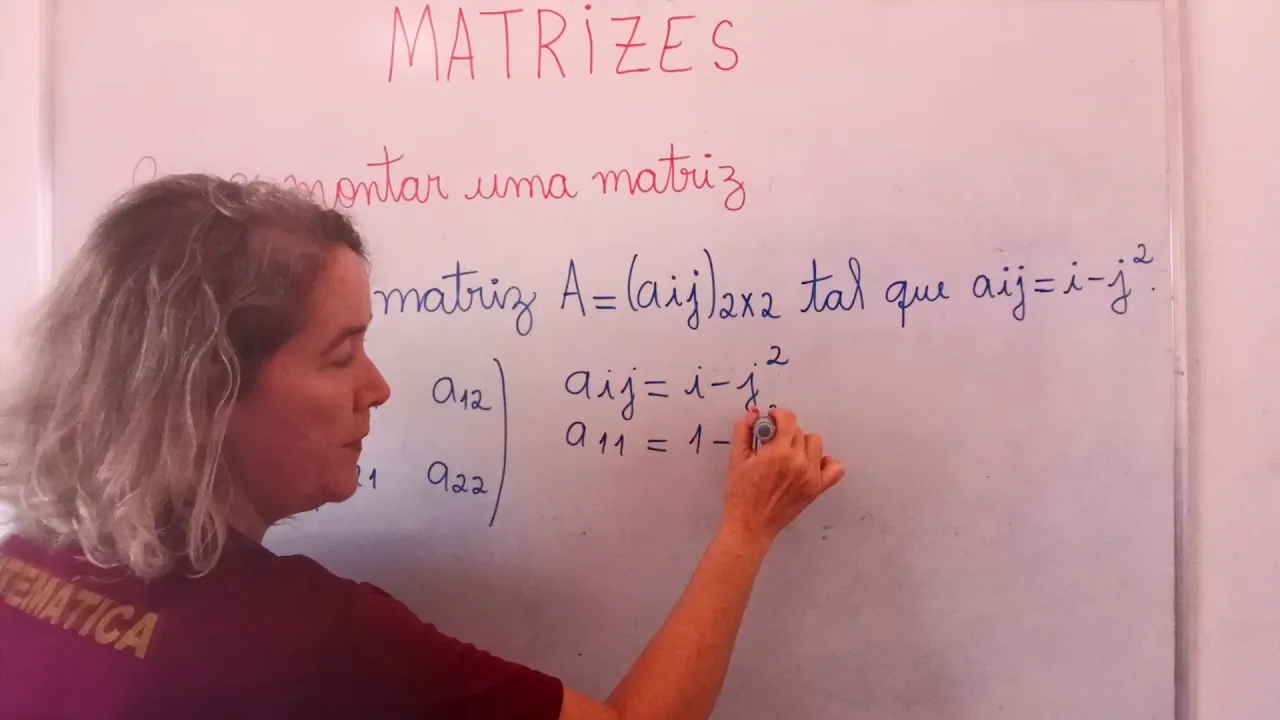 MATRIZES
montar uma matriz
matriz A = (aij)2x2 tal que aij = i - j².
a12 aij = i - j²
a11 = 1 -
a22
TEMÁTICA